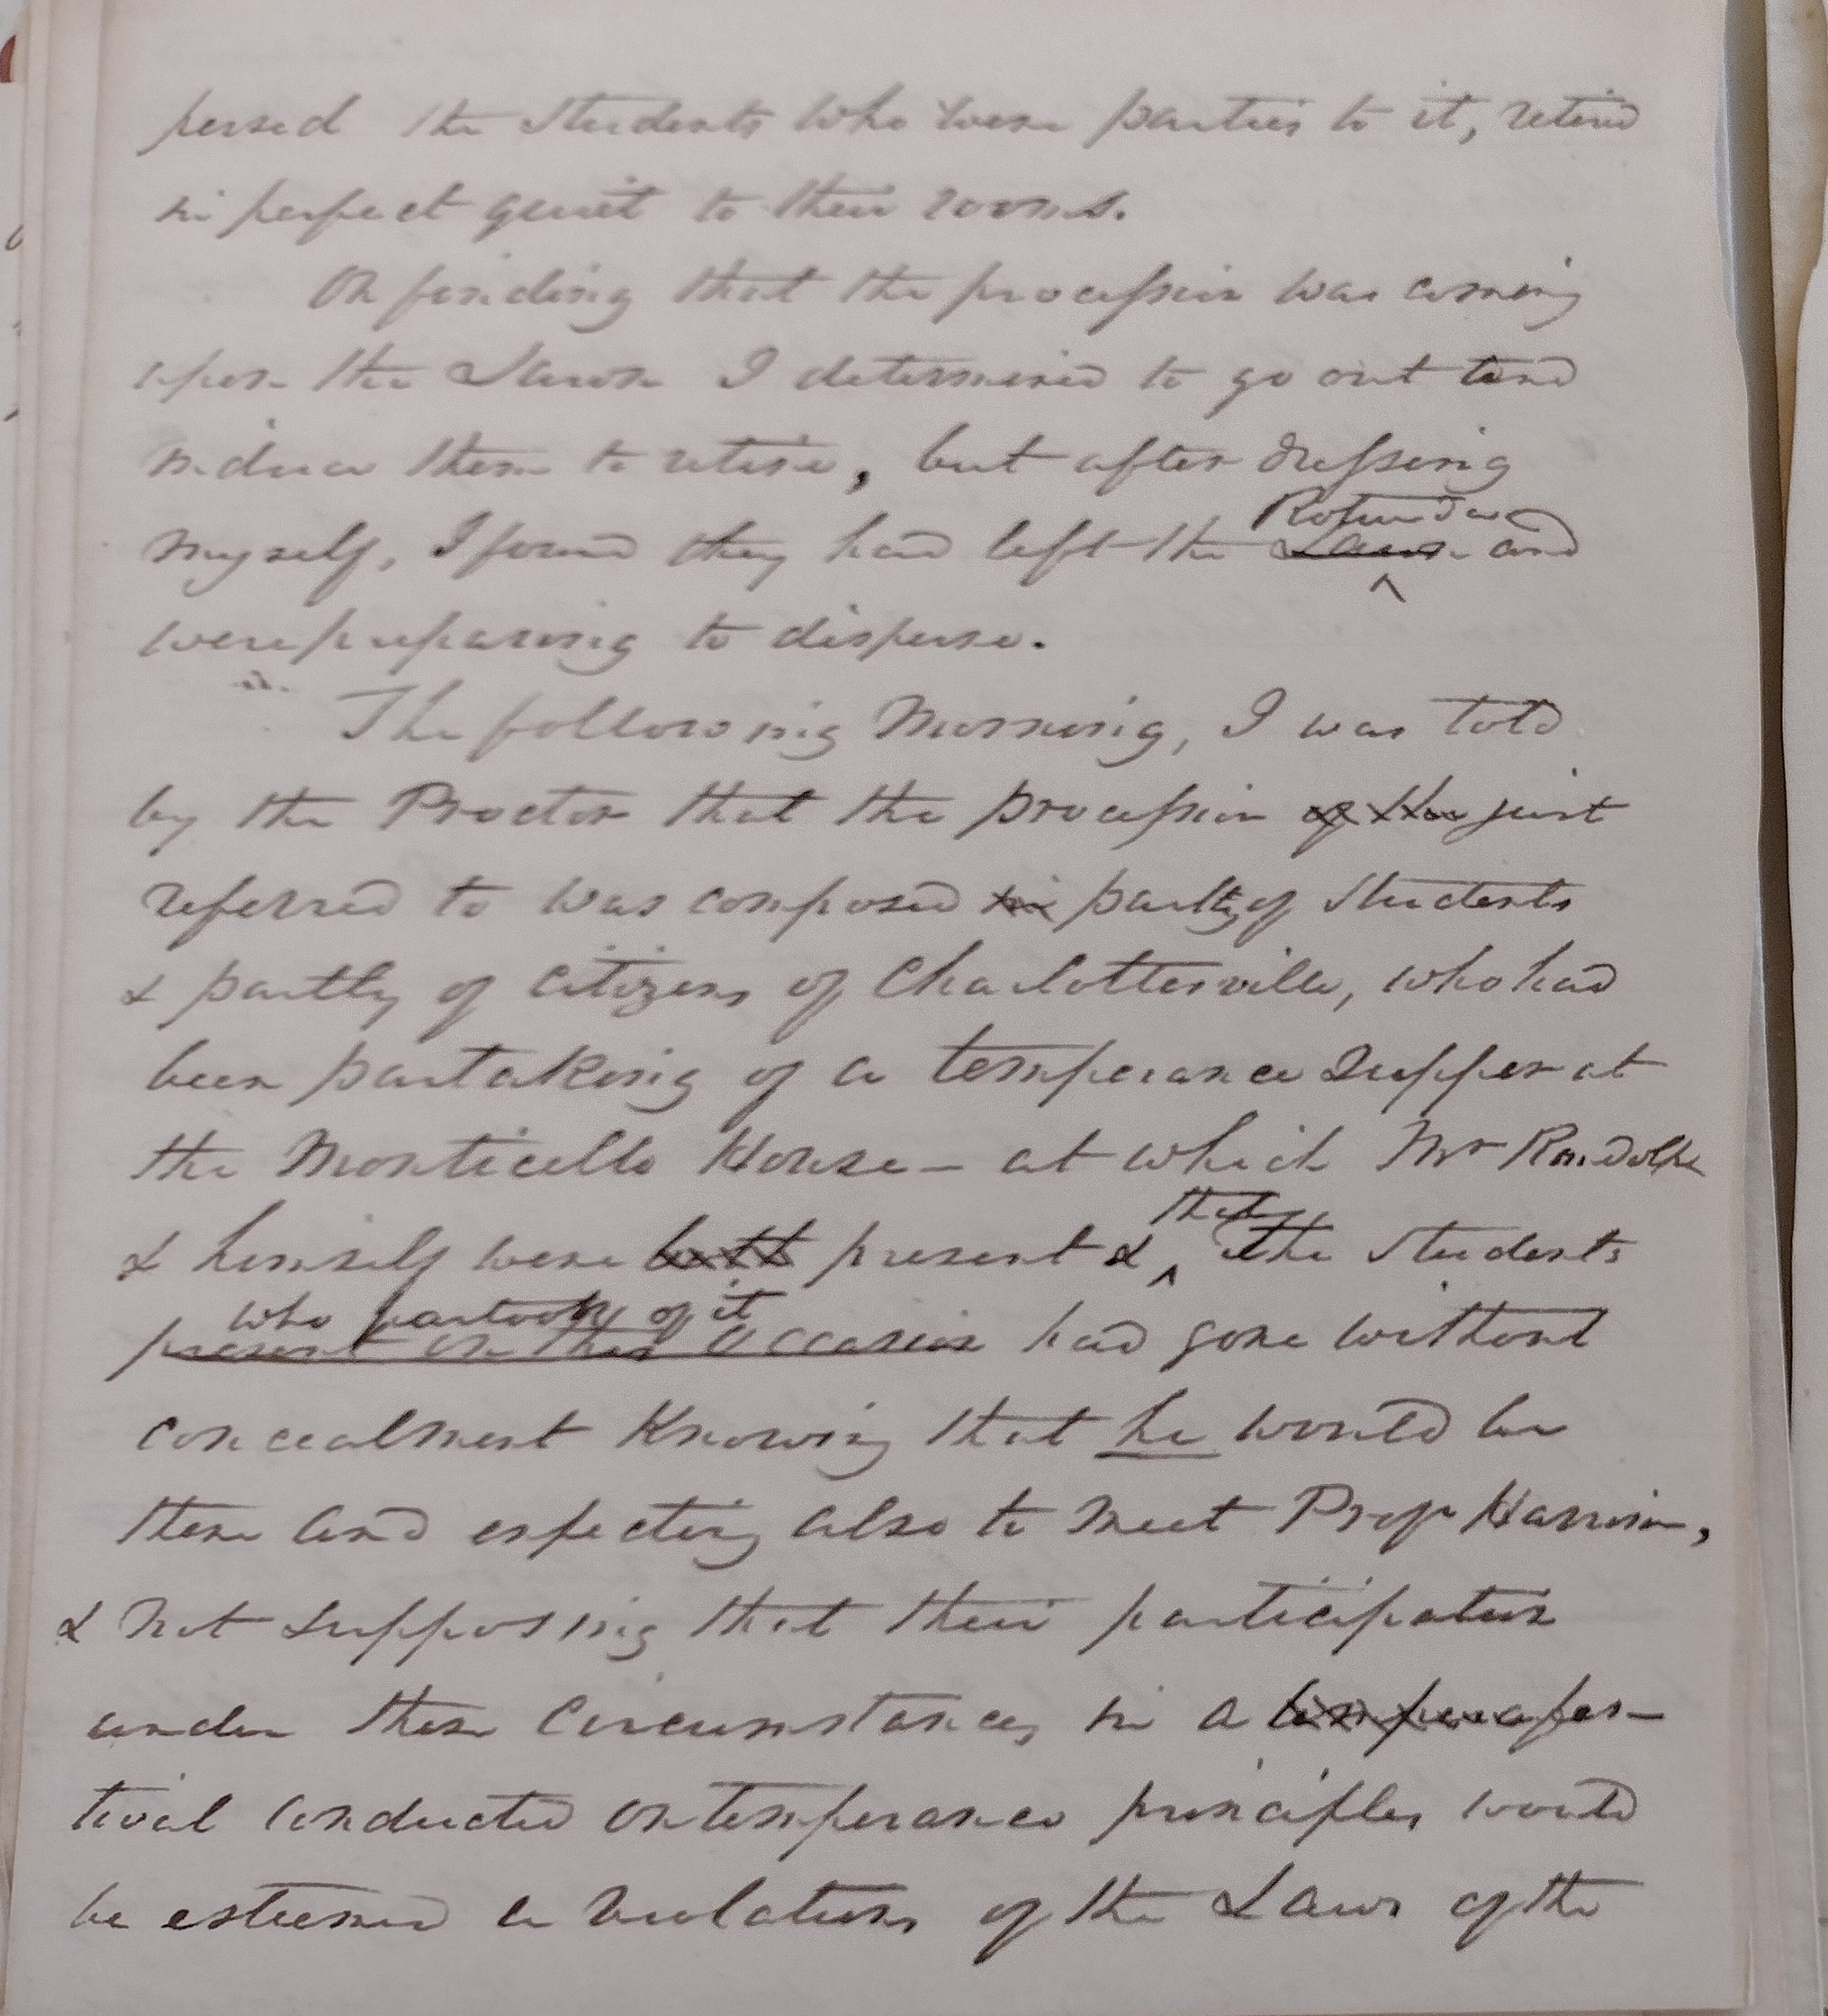 persed the Students who were parties to it, retired
in perfect quiet to their rooms.
On finding that the procession was coming
upon the Lawn I determined to go out and
induce them to retire, but after dressing
Rotunda
myself, I found they had left the Lawn and
were preparing to disperse.
The following Morning, I was told
by the Proctor that the procession of the just
referred to was composed in partly of Students
& partly of Citizens of Charlottesville, who had
been partaking of a temperance Supper at
the Monticello House – at which Mr Randolph
that
& himself were both present & the Students
who partook of it
present on this occasion had gone without
concealment Knowing that he would be
there and expecting also to meet Profr Harrison,
& not supposing that their participation
under these Circumstances in a tempera fes-
tival conducted on temperance principles would
be esteemed a violation of the Laws of the